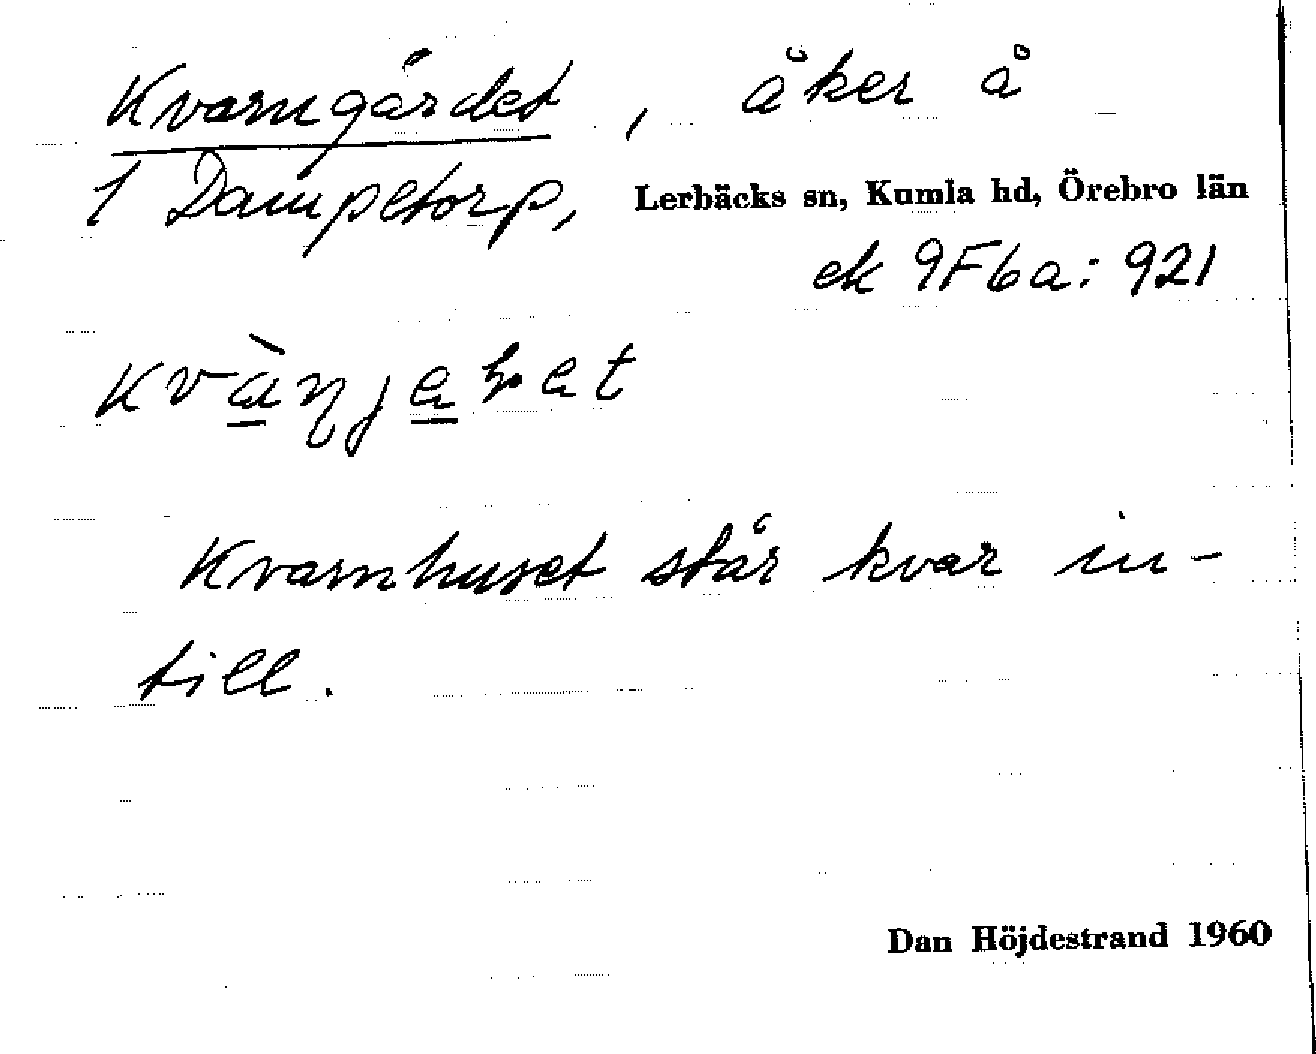 Kvarngärdet, åker å
1 Dampetorp, Lerbäcks sn, Kumla hd, Örebro län
ek 9F6a: 921
Kvarnhuset står kvar in-
till.
Dan Höjdestrand 1960